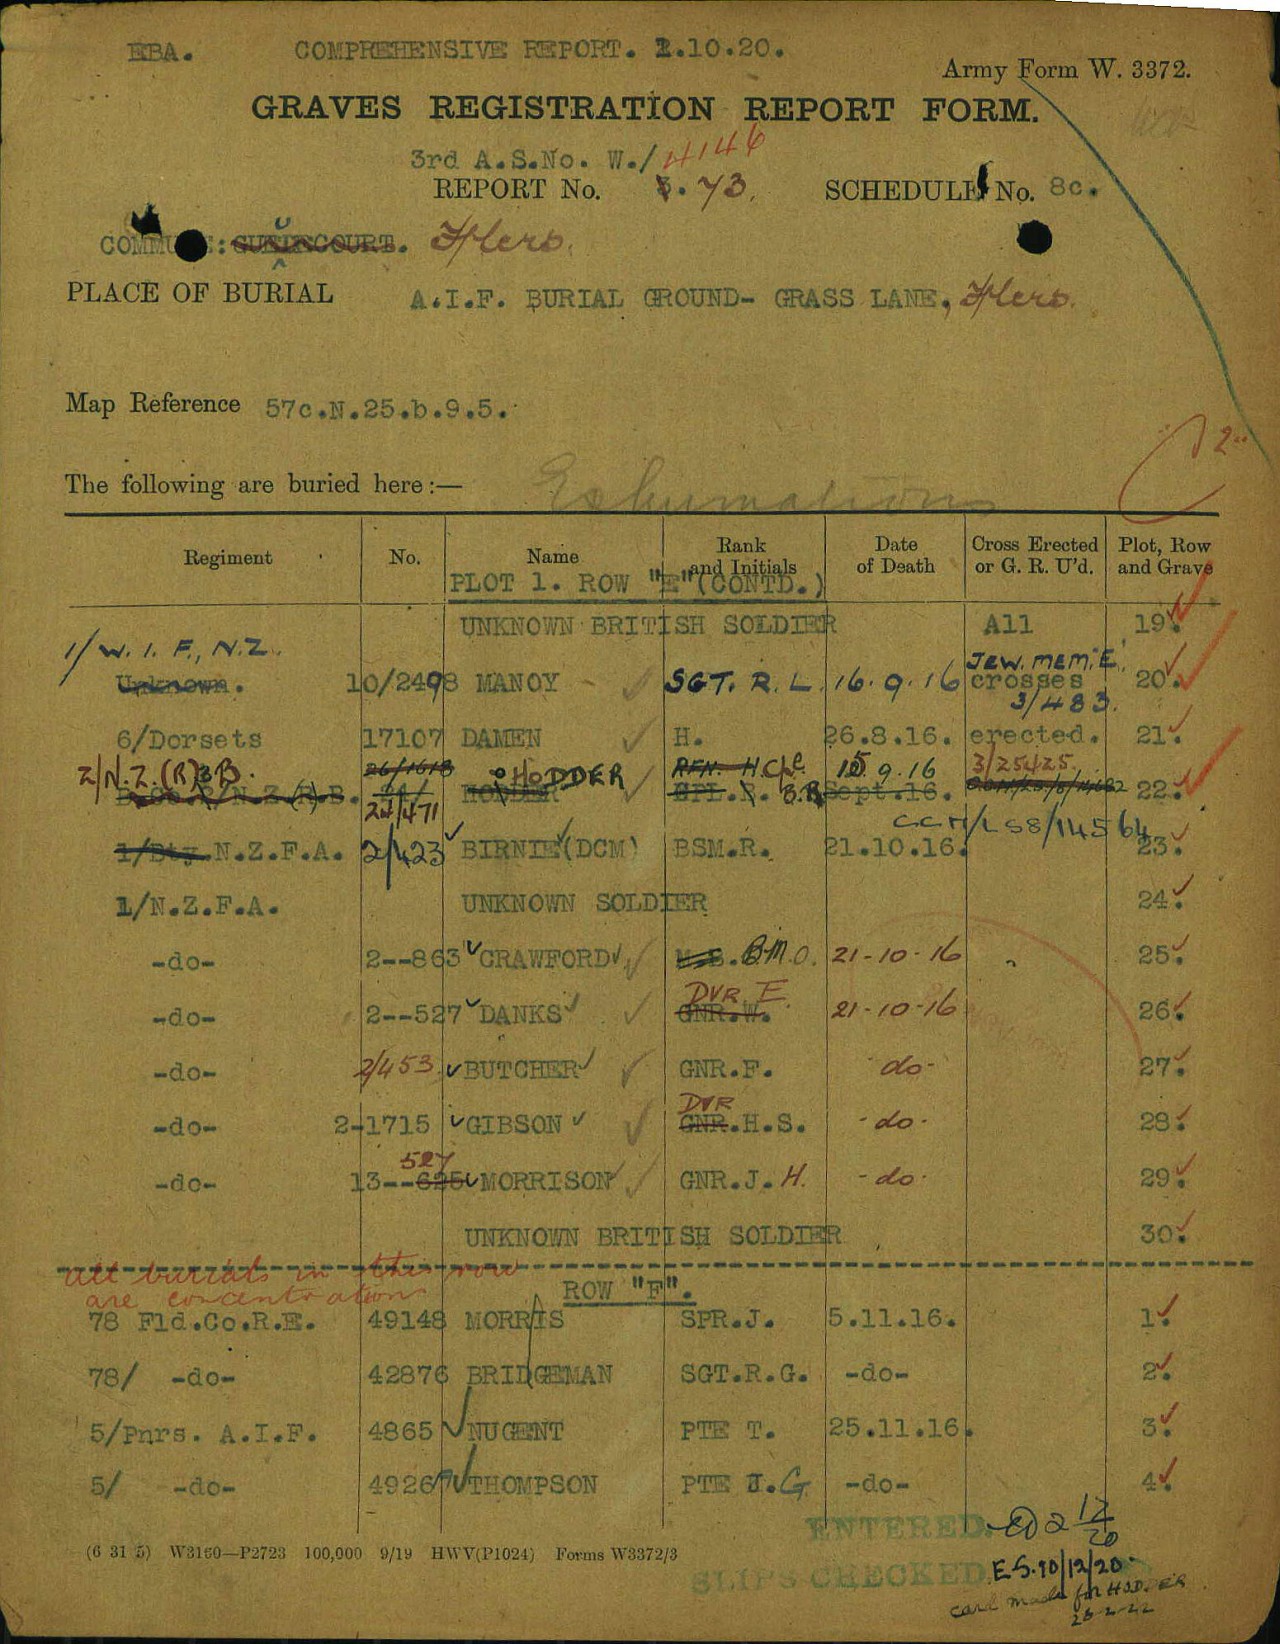 EBA. COMPREHENSIVE REPORT. 1.10.20.
Army Form W. 3372.
GRAVES REGISTRATION REPORT FORM.
3rd A.S.No. W./4146
REPORT No. 3.73. SCHEDULE No. 8c.
COMMUNE: Flers.
PLACE OF BURIAL A.I.F. BURIAL GROUND- GRASS LANE, Flers.
Map Reference 57c.N.25.b.9.5.
The following are buried here:— Exhumations
Regiment No. Name Rank and Initials Date of Death Cross Erected or G. R. U'd. Plot, Row and Grave
PLOT 1. ROW "E"(CONTD.)
UNKNOWN BRITISH SOLDIER All 19.
1/W. I. F., N.Z. JEW. MEM. E.
Unknown. 10/2498 MANOY SGT. R. L. 16.9.16 crosses 20.
3/483.
6/Dorsets 17107 DAMEN H. 26.8.16. erected. 21.
2/N.Z.(R)B. 26/1618 HODDER RFN. H. Cpl. 15 9.16 3/25425.
24/471 Sept.16. 22.
CCM/LS8/14564
1/Bty.N.Z.F.A. 2/423 BIRNIE(DCM) BSM.R. 21.10.16. 23.
1/N.Z.F.A. UNKNOWN SOLDIER 24.
-do- 2--863 CRAWFORD B.M.O. 21-10-16 25.
DVR E.
-do- 2--527 DANKS GNR.W. 21-10-16 26.
-do- 2/453 BUTCHER GNR.F. do- 27.
DVR
-do- 2-1715 GIBSON GNR.H.S. -do- 28.
527
-do- 13--625 MORRISON GNR.J.H. -do- 29.
UNKNOWN BRITISH SOLDIER 30.
all burials in this row
are concentrations
ROW "F".
78 Fld.Co.R.E. 49148 MORRIS SPR.J. 5.11.16. 1.
78/ -do- 42876 BRIDGEMAN SGT.R.G. -do- 2.
5/Pnrs. A.I.F. 4865 NUGENT PTE T. 25.11.16. 3.
5/ -do- 4926 THOMPSON PTE J.G -do- 4.
ENTERED.
(6 31 5) W3160—P2723 100,000 9/19 HWV(P1024) Forms W3372/3
SLIPS CHECKED. E.S. 10/12/20.
card made for HODDER